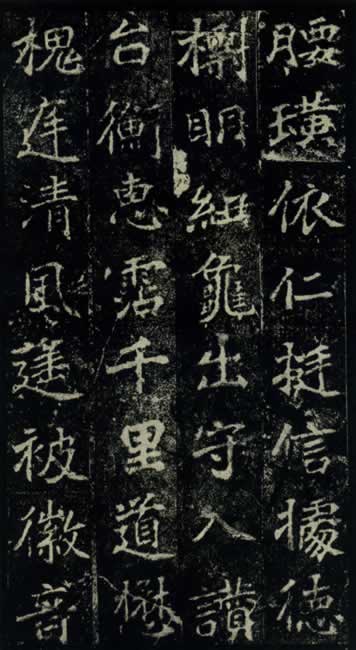 腰璜依仁挺信據德
樹明紐龜出守入讚
台衡惠霑千里道懋
槐庭清風被徽音